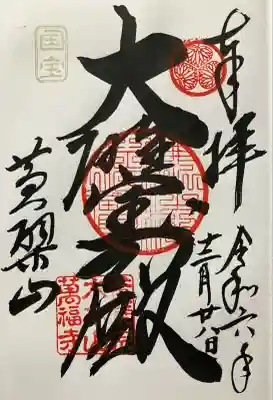 奉拝
令和六年
十二月廿八日
大雄宝殿
国宝
黄檗山
萬福寺